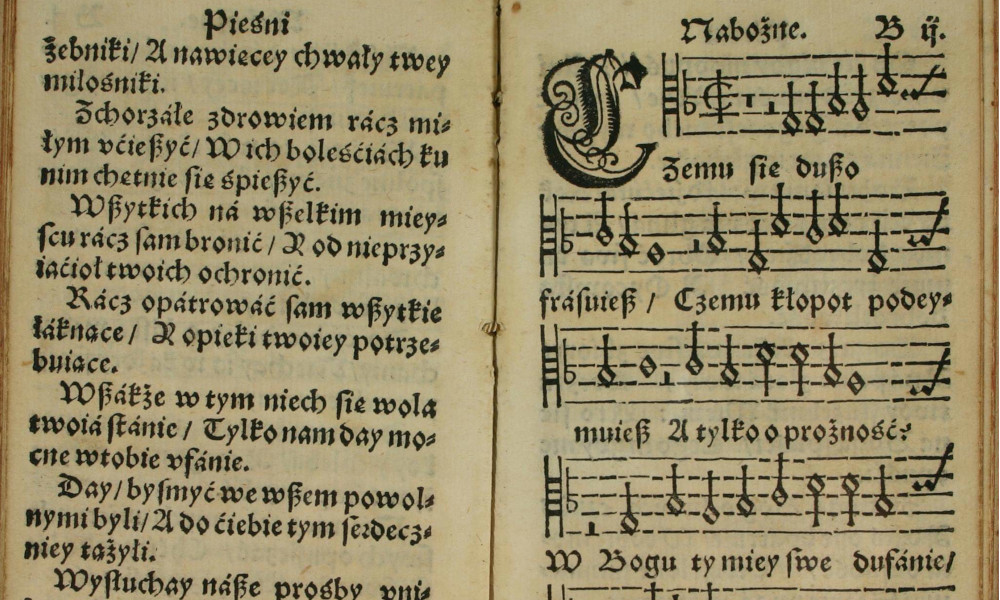 Pieśni
żebniki/ A nawiecey chwały twey
miłośniki.
Zchorzáłe zdrowiem rácz mi⸗
łym vćießyć/ W ich boleśćiách ku
nim chetnie sie śpießyć.
Wßytkich ná wßelkim miey⸗
scu rácz sam bronić / Y od nieprzy⸗
iaćioł twoich ochronić.
Rácz opátrowáć sam wßytkie
łáknące / Y opieki twoiey potrze⸗
buiące.
Wßákże w tym niech sie wola
twoiá stánie / Tylko nam day mo⸗
cne wtobie vfánie.
Day/ bysmyć we wßem powol⸗
nymi byli/ A do ćiebie tym serdecz⸗
niey tążyli.
Wysłuchay náße prośby vni⸗
Nabożne. B ij.
Czemu sie dußo
frásuieß / Czemu kłopot podey⸗
muieß A tylko o prożność?
W Bogu ty miey swe dufánie/